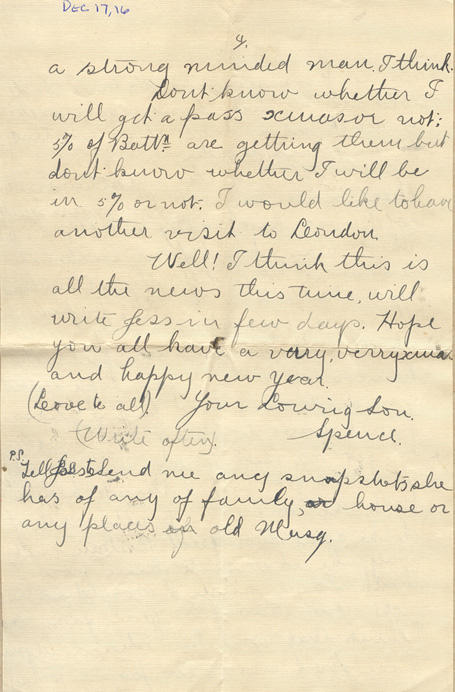 DEC 17, 16
4.
a strong minded man. I think.
Dont know whether I
will get a pass xmas or not;
5% of Battn. are getting them but
dont know whether I will be
in 5% or not. I would like to have
another visit to London.
Well! I think this is
all the news this time, will
write Jess in few days. Hope
you all have a very, very xmas
and happy new year.
(Love to all) Your Loving Son.
(Write often). Spence.
P.S. Tell Jess to send me any snapshots she
has of any of family, or house or
any places in old Musq.